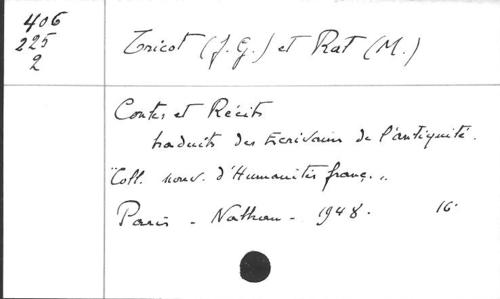 406
225
2
Tricot (J. G.) et Rat (M.)
Contes et Récits
traduits des Ecrivains de l'antiquité.
"Coll. nouv. d'Humanités franç.„
Paris - Nathan - 1948. 16°